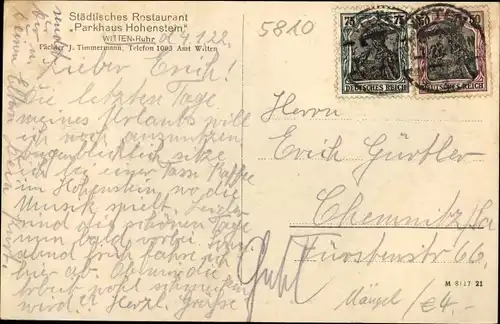 Städtisches Restaurant
"Parkhaus Hohenstein"
WITTEN-Ruhr
Pächter J. Timmermann, Telefon 1093 Amt Witten
d. 4.1.22.
Lieber Erich!
Die letzten Tage
meines Urlaubs will
ich noch auszunutzen
augenblicklich sitze
ich bei einer Tasse Kaffee
im Hohenstein, wo die
Musik spielt. Leider
sind die schönen Tage
nun bald vorbei.
abend früh fahre ich
hier ab. Ob mir die
Arbeit wohl schmecken
wird?! Herzl. Grüße
sendet
Dir
Kurt.
5810
75 75
DEUTSCHES REICH
50 50
DEUTSCHES REICH
Herrn
Erich Gürtler
Chemnitz i/Sa
Fürstenstr 66.
M 8/17 21
Mängel /€4.-